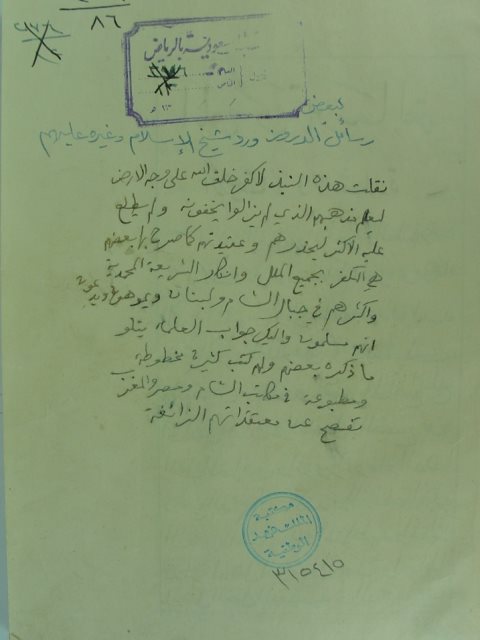 ٨٦
السعودية بالرياض
بعض
رسائل الدروز ورد شيخ الإسلام وغيره عليهم
نقلت هذه النبذ لأكفر خلق الله على وجه الارض
ليعلم مذهبهم الذي لم يزالوا يخفونه ولم يطلع
عليه الأكثر ليحذرهم وعقيدتهم كما صرح بها بعضهم
هي الكفر بجميع الملل وانكار الشريعة المحمدية
واكثرهم في جبال الشام ولبنان ويموهون
انهم مسلمون واليك جواب العلماء يتلو
ما ذكره بعضهم ولهم كتب كثيرة مخطوطة
ومطبوعة في مكاتب الشام ومصر والمغرب
تفصح عن معتقداتهم الزائغة
مكتبة
الملك فهد
الوطنية
٣١٥٤١٥